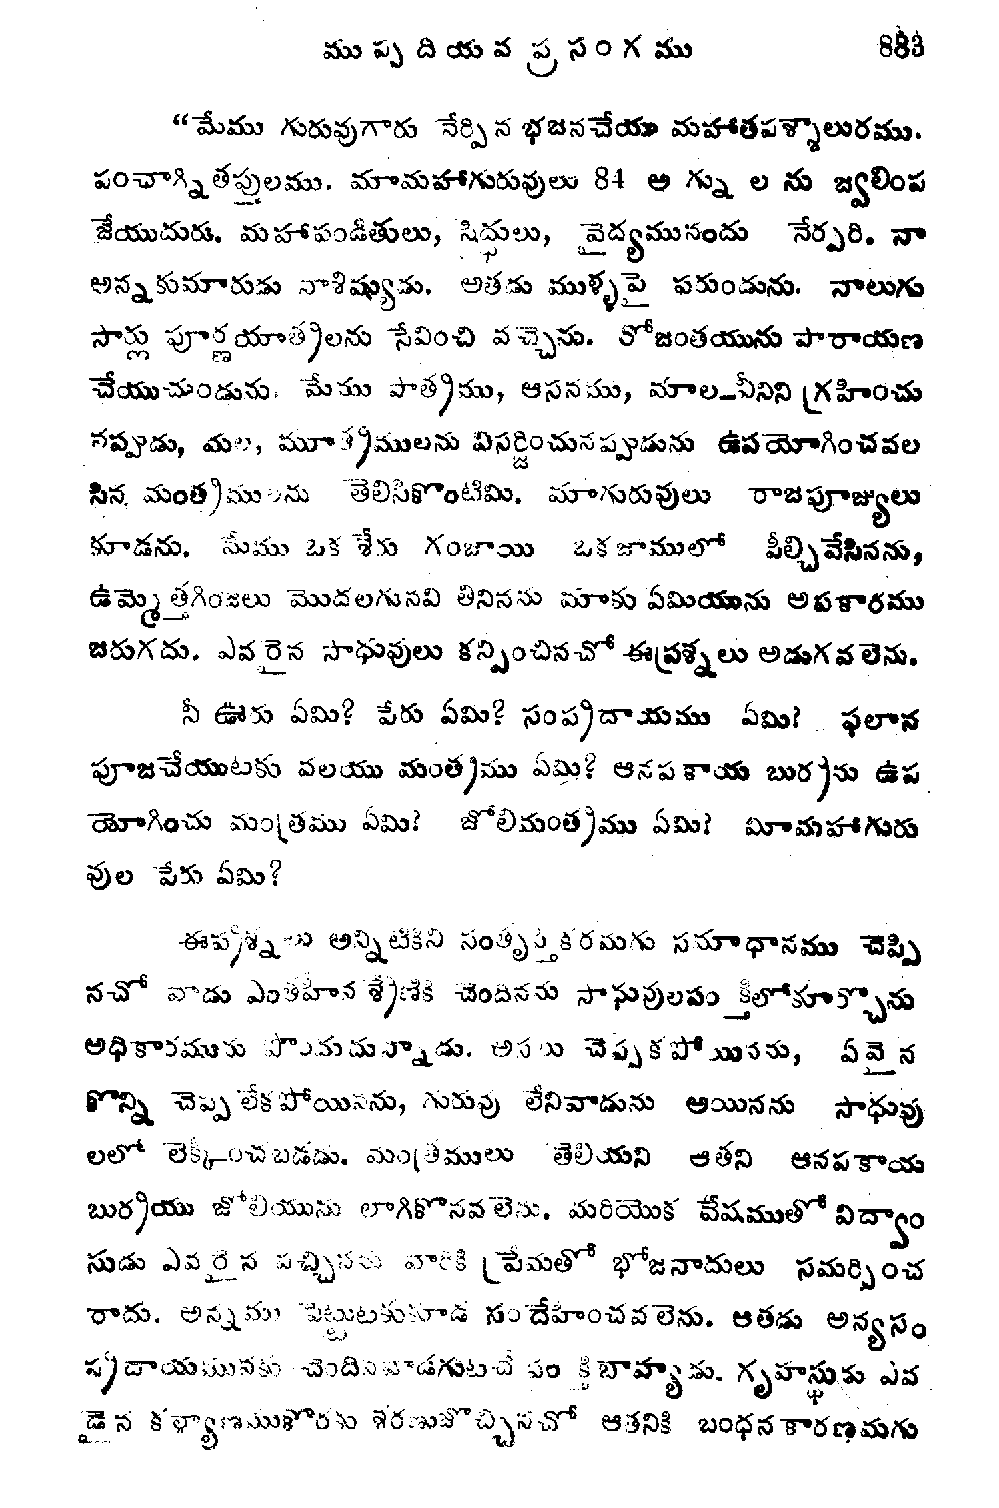 ముప్పదియవ ప్రసంగము 883
“మేము గురువుగారు నేర్పిన భజనచేయు మహాతపశ్శాలురము.
పంచాగ్నితప్తులము. మామహాగురువులు 84 అగ్నులను జ్వలింప
జేయుదురు. మహాపండితులు, సిద్ధులు, వైద్యమునందు నేర్పరి. నా
అన్నకుమారుడు నాశిష్యుడు. అతడు ముళ్ళపై పరుండును. నాలుగు
సార్లు పూర్ణయాత్రలను సేవించి వచ్చెను. రోజంతయును పారాయణ
చేయుచుండును. మేము పాత్రము, ఆసనము, మాల—వీనిని గ్రహించు
నప్పుడు, మల, మూత్రములను విసర్జించునప్పుడును ఉపయోగించవల
సిన మంత్రములను తెలిసికొంటిమి. మాగురువులు రాజపూజ్యులు
కూడను. మేము ఒక శేరు గంజాయి ఒకజాములో పీల్చివేసినను,
ఉమ్మెత్తగింజలు మొదలగునవి తినినను మాకు ఏమియును అపకారము
జరుగదు. ఎవరైన సాధువులు కన్పించినచో ఈప్రశ్నలు అడుగవలెను.
నీ ఊరు ఏమి? పేరు ఏమి? సంప్రదాయము ఏమి? ఫలాన
పూజచేయుటకు వలయు మంత్రము ఏమి? ఆనపకాయ బుర్రను ఉప
యోగించు మంత్రము ఏమి? జోలిమంత్రము ఏమి? మీమహాగురు
వుల పేరు ఏమి?
ఈప్రశ్నలు అన్నిటికిని సంతృప్తికరమగు సమాధానము చెప్పి
నచో వాడు ఎంతహీనశ్రేణికి చెందినను సాధువులపంక్తిలోకూర్చొను
అధికారమును పొందుచున్నాడు. అసలు చెప్పకపోయినను, ఏవైన
కొన్ని చెప్పలేకపోయినను, గురువు లేనివాడును అయినను సాధువు
లలో లెక్కించబడడు. మంత్రములు తెలియని ఆతని ఆనపకాయ
బుర్రయు జోలియును లాగికొనవలెను. మరియొక వేషముతో విద్వాం
సుడు ఎవరైన వచ్చినను వారికి ప్రేమతో భోజనాదులు సమర్పించ
రాదు. అన్నము పెట్టుటకుకూడ సందేహించవలెను. ఆతడు అన్యసం
ప్రదాయమునకు చెందినవాడగుటచే పంక్తిబాహ్యుడు. గృహస్థుడు ఎవ
డైన కళ్యాణముకొరకు శరణుజొచ్చినచో ఆతనికి బంధనకారణమగు